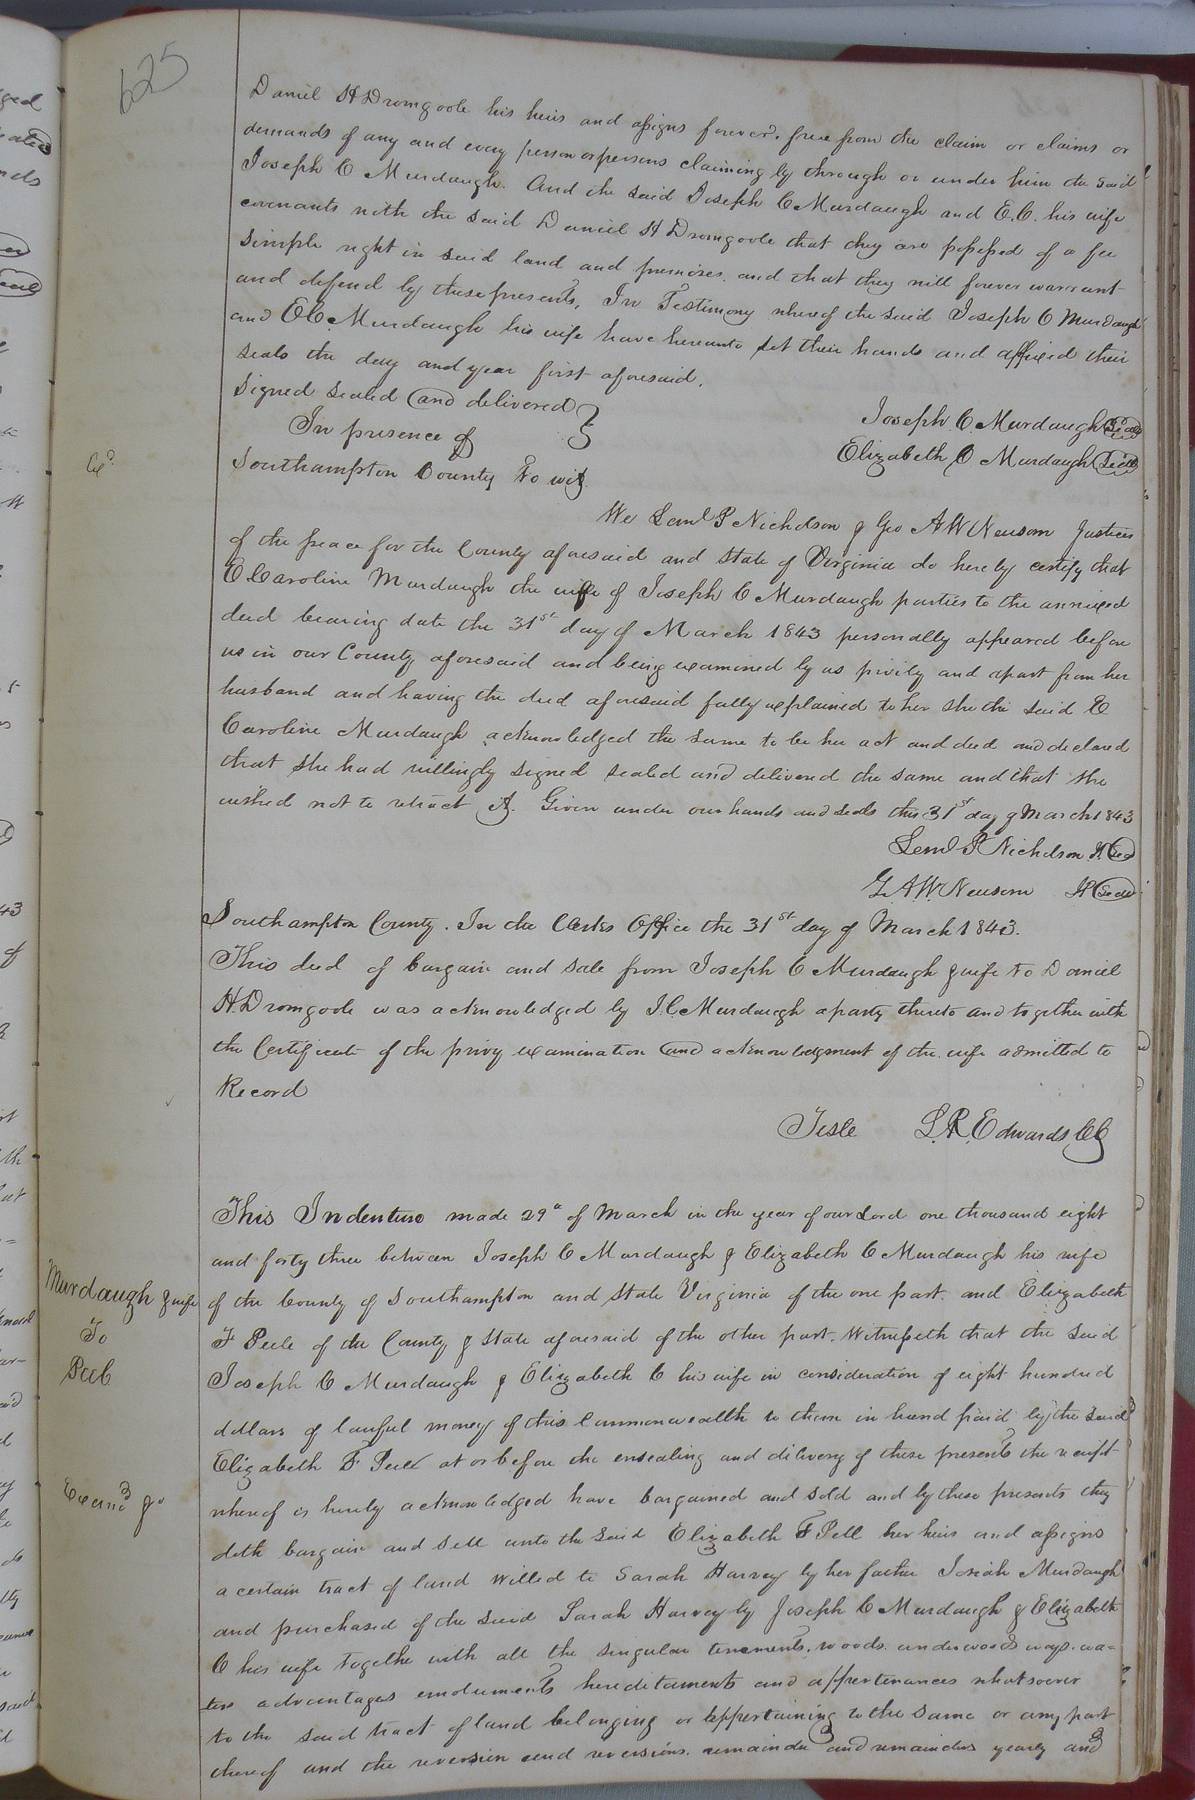 625
Daniel H Dromgoole his heirs and assigns forever. free from the claim or claims or
demands of any and every person or persons claiming by through or under him the said
Joseph C Murdaugh. And the said Joseph C Murdaugh and E.C. his wife
covenants with the said Daniel H Dromgoole that they are possessed of a fee
simple right in said land and premises and that they will forever warrant
and defend by these presents, In Testimony whereof the said Joseph C Murdaugh
and E C. Murdaugh his wife have hereunto set their hands and affixed their
seals the day and year first aforesaid.
Signed sealed and delivered
In presence of
Joseph C. Murdaugh Seal
Elizabeth C Murdaugh Seal
Southampton County to wit
We Leml P Nicholson & Geo A W Newsom Justices
of the peace for the County aforesaid and State of Virginia do hereby certify that
E Caroline Murdaugh the wife of Joseph C Murdaugh parties to the annexed
deed bearing date the 31st day of March 1843 personally appeared before
us in our County aforesaid and being examined by us privily and apart from her
husband and having the deed aforesaid fully explained to her she the said E
Caroline Murdaugh acknowledged the same to be her act and deed and declared
that she had willingly signed sealed and delivered the same and that she
wished not to retract it. Given under our hands and seals this 31st day of March 1843
Leml P Nicholson Seal
G. A. W. Newsom JP Seal
Southampton County. In the Clerks Office the 31st day of March 1843.
This deed of bargain and sale from Joseph C Murdaugh & wife to Daniel
H. Dromgoole was acknowledged by J. C. Murdaugh a party thereto and together with
the Certificate of the privy examination and acknowledgment of the wife admitted to
Record
Teste L. R. Edwards CC
Murdaugh & wife
To
Peele
This Indenture made 29th of March in the year of our Lord one thousand eight
and forty three between Joseph C Murdaugh & Elizabeth C Murdaugh his wife
of the County of Southampton and State Virginia of the one part. and Elizabeth
F Peele of the County & State aforesaid of the other part. Witnesseth that the said
Joseph C Murdaugh & Elizabeth C his wife in consideration of eight hundred
dollars of lawful money of this Commonwealth to them in hand paid by the said
Elizabeth F Peele at or before the ensealing and dilivery of these presents the receipt
whereof is hereby acknowledged have bargained and sold and by these presents they
doth bargain and sell unto the said Elizabeth F Pell her heirs and assigns
a certain tract of land willed to Sarah Harvey by her father Josiah Murdaugh
and purchased of the said Sarah Harvey by Joseph C Murdaugh & Elizabeth
C his wife togethe with all the singular tenements, woods. underwoods ways. wa=
ters advantages emoluments hereditaments and appertenances whatsoever
to the said tract of land belonging or appertaining to the same or any part
thereof and the reversion and reversions. remainder and remainders yearly and